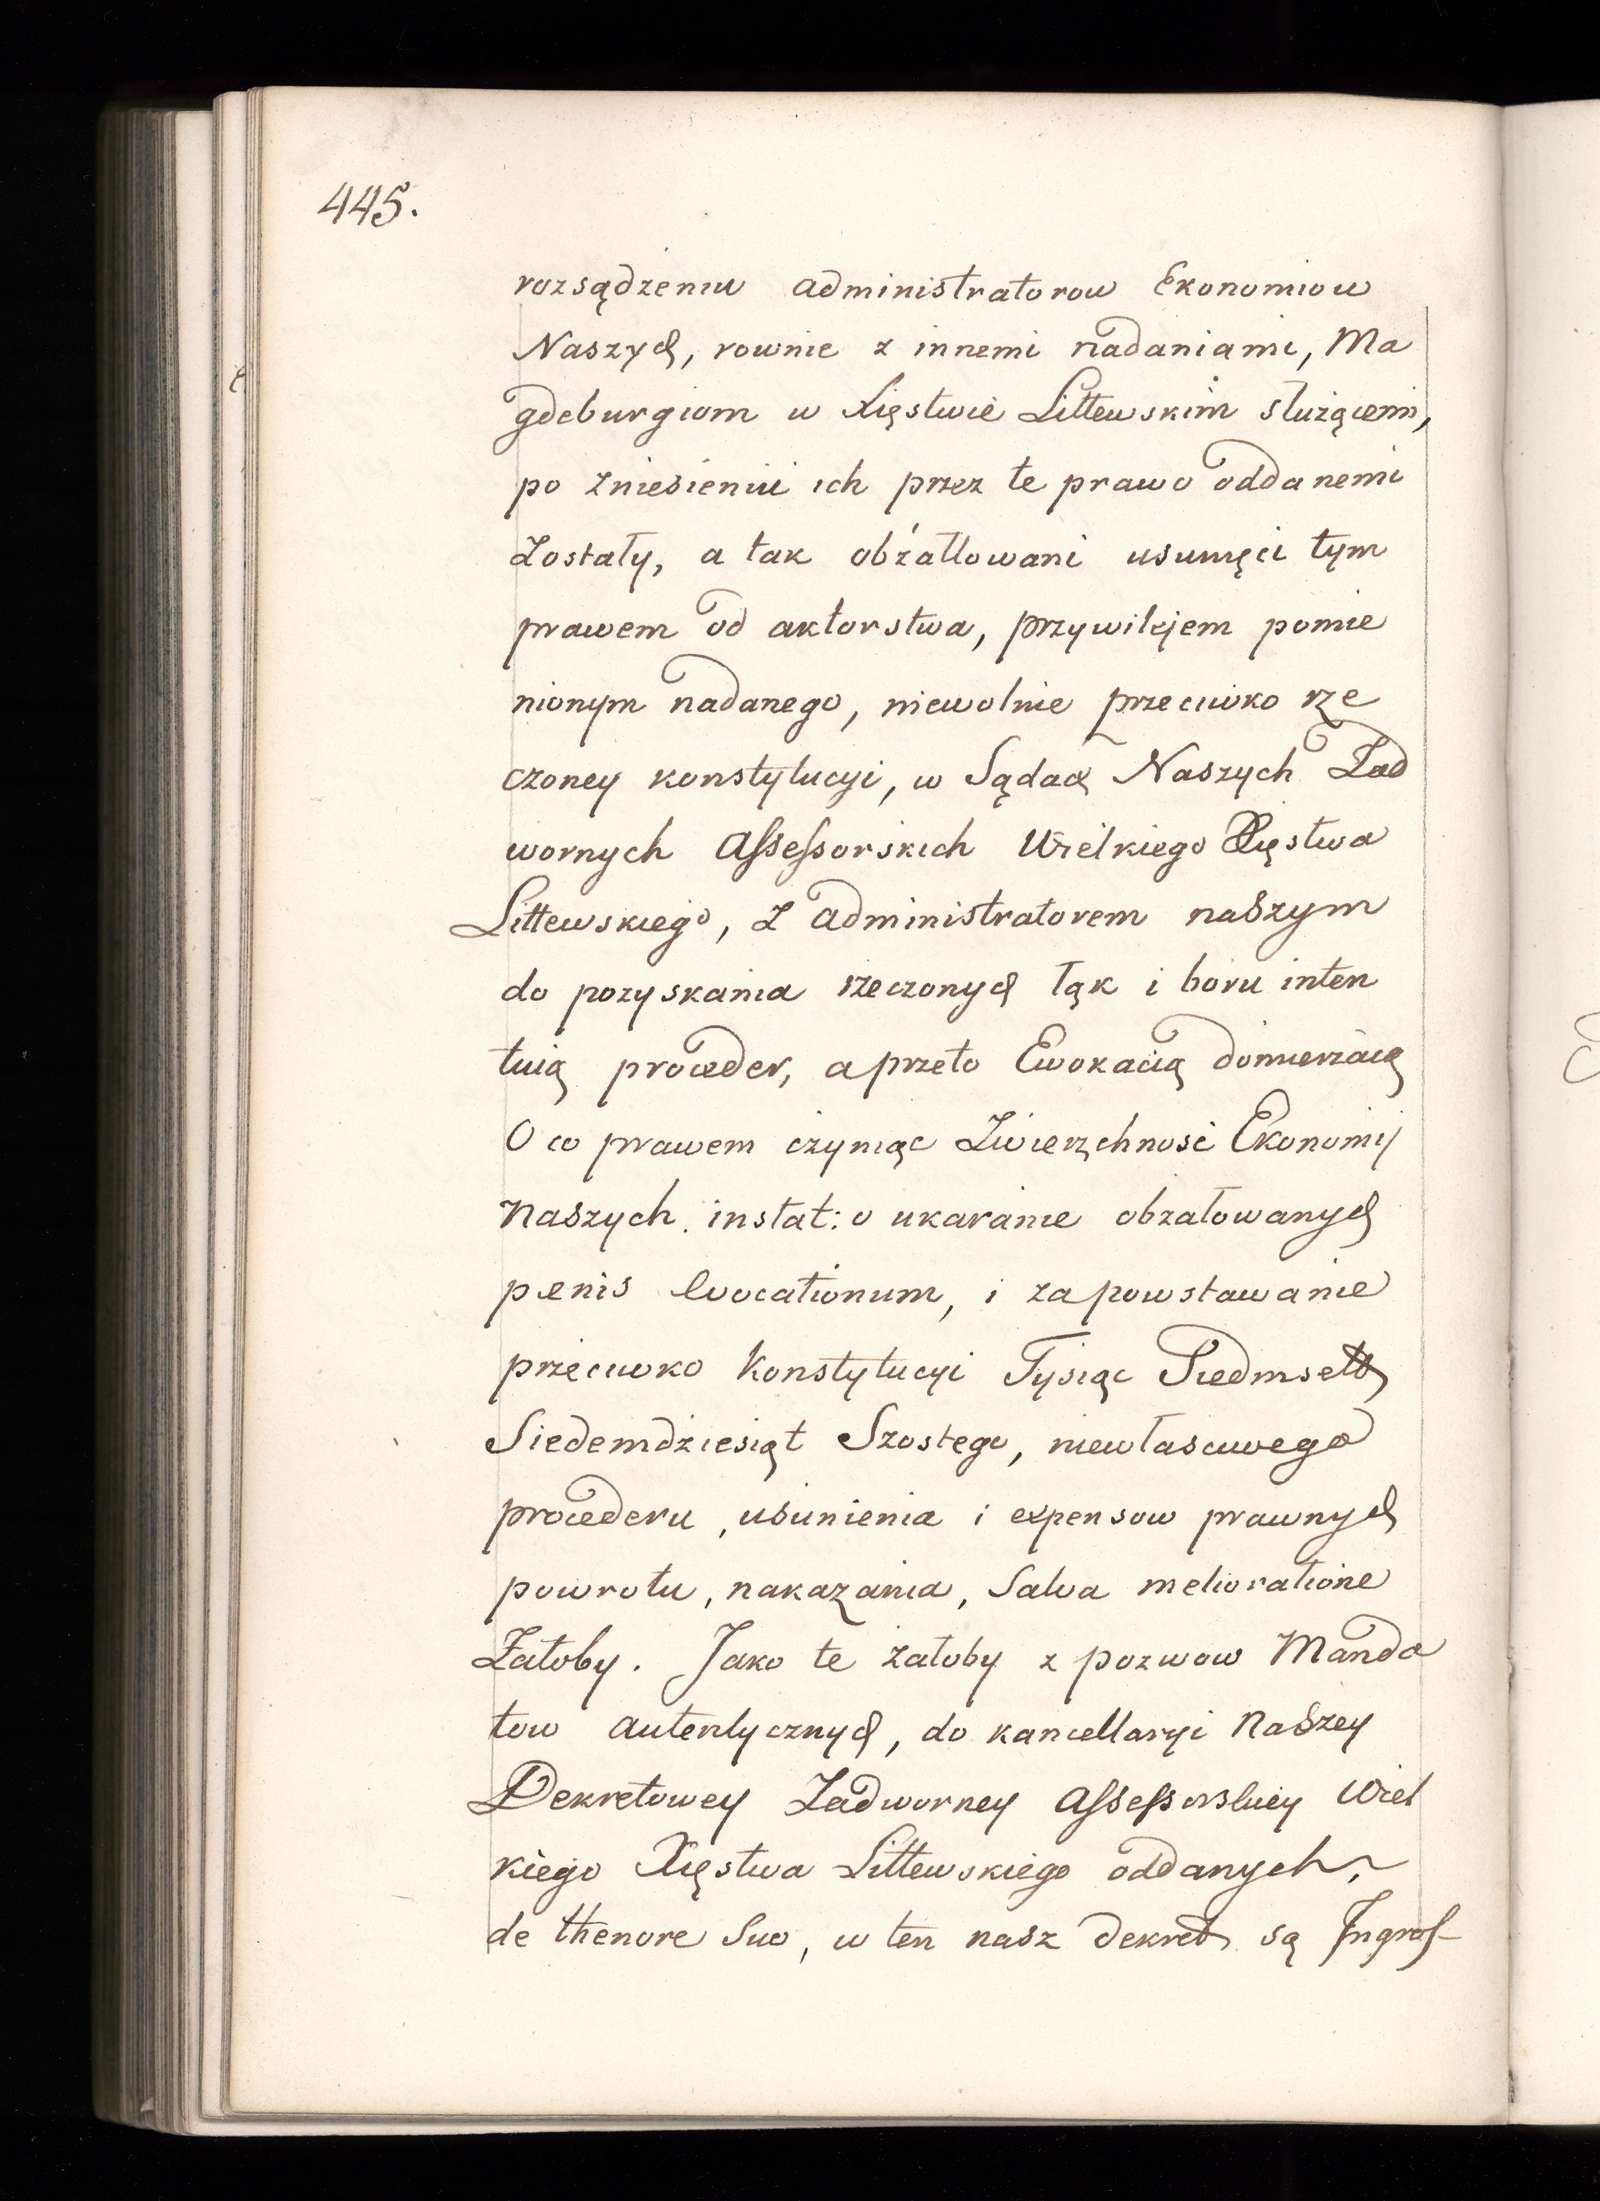 445.
rozsądzeniu administratorow Ekonomiow
Naszych, rownie z innemi nadaniami, Ma
gdeburgiom w Xięstwie Littewskim służącemi,
po zniesieniu ich przez te prawo oddanemi
Zostały, a tak obżałłowani usunięci tym
prawem od aktorstwa, przywilejem pomie
nionym nadanego, niewolnie przeciwko rze
czoney konstytucyi, w Sądach Naszych Zad
wornych Assessorskich Wielkiego Xięstwa
Littewskiego, z administratorem naszym
do pozyskania rzeczonych łąk i boru inten
tuią proceder, a przeto Ewokacią domierzaią
O co prawem czyniąc Zwierzchność Ekonomij
Naszych instat: o ukaranie obżałowanych
penis evocationum, i za powstawanie
przeciwko Konstytucyi Tysiąc Siedmsett
Siedemdziesiąt Szostego, niewłasciwego
procederu, usunienia i expensow prawnych
powrotu, nakazania, Salva melioratione
Żałoby. Jako te żałoby z pozwow Manda
tow autentycznych, do kancellaryi Naszey
Dekretowey Zadworney Assessorskiey Wiel
kiego Xięstwa Littewskiego oddanych,
de thenore Suo, w ten nasz dekret są Ingros-